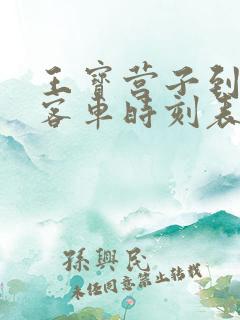 王寶营子到
客車時刻表
孫興民
未任同意禁止转载